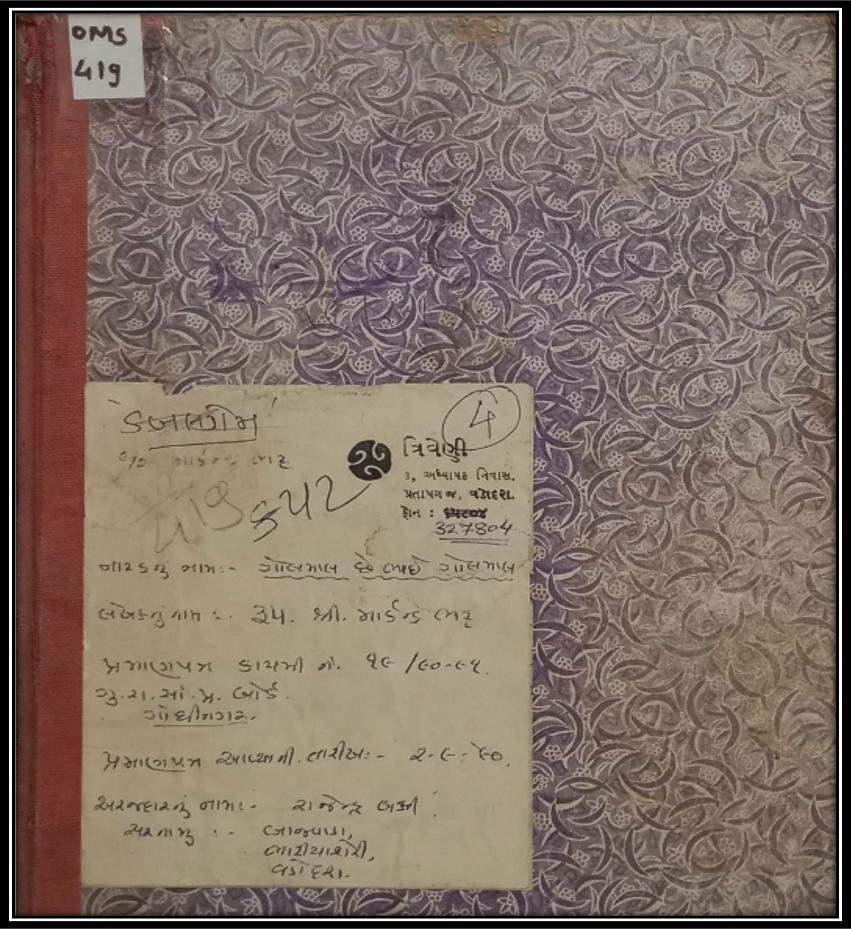 OMS
419
'ડબલગેમ'
4
માર્કન્ડ ભટ્ટ
419
કપટ
ત્રિવેણી
૩, અધ્યાપક નિવાસ,
પ્રતાપગંજ, વડોદરા.
ફોન :
327804
નાટકનું નામ:- ગોલમાલ છે ભાઈ ગોલમાલ
લેખકનું નામ :- રૂપા. શ્રી. માર્કન્ડ ભટ્ટ
પ્રમાણપત્ર કાયમી નં. ૧૯/૯૦-૯૧.
ગુ.રા.સાં.પ્ર. બોર્ડ.
ગાંધીનગર.
પ્રમાણપત્ર આપ્યાની તારીખ:- ૨-૯-૯૦.
અરજદારનું નામ:- રાજેન્દ્ર બક્ષી.
સરનામું :- બાજવાડા,
વડોદરા.